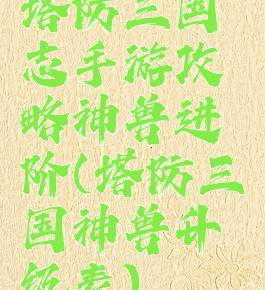 塔防三国
志手游攻
略神兽进
阶(塔防三
国神兽升
级表)